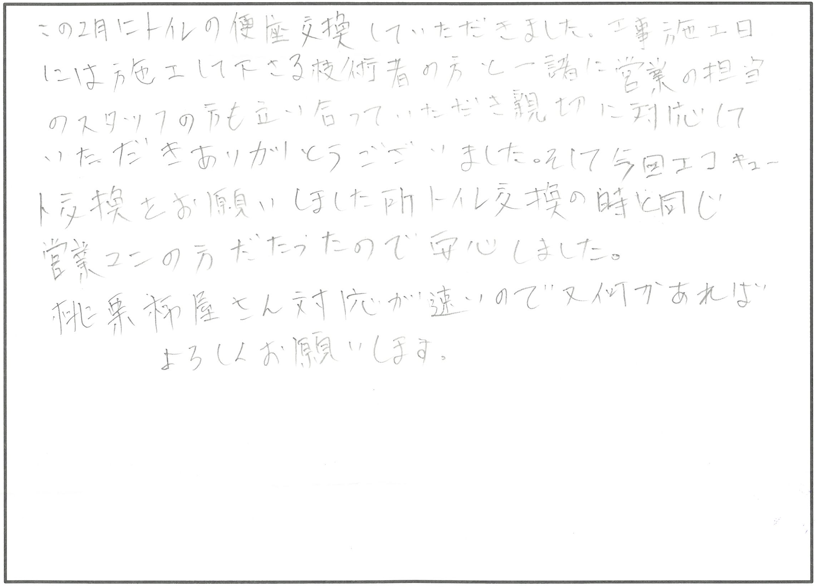 この2月にトイレの便座交換していただきました。工事施工日
には施工して下さる技術者の方と一諸に営業の担当
のスタッフの方も立い合っていただき親切に対応して
いただきありがとうございました。そして今回エコキュー
ト交換をお願いしました所トイレ交換の時と同じ
営業マンの方だたったので安心しました。
桃栗柿屋さん対応が速いので又何かあれば
よろしくお願いします。